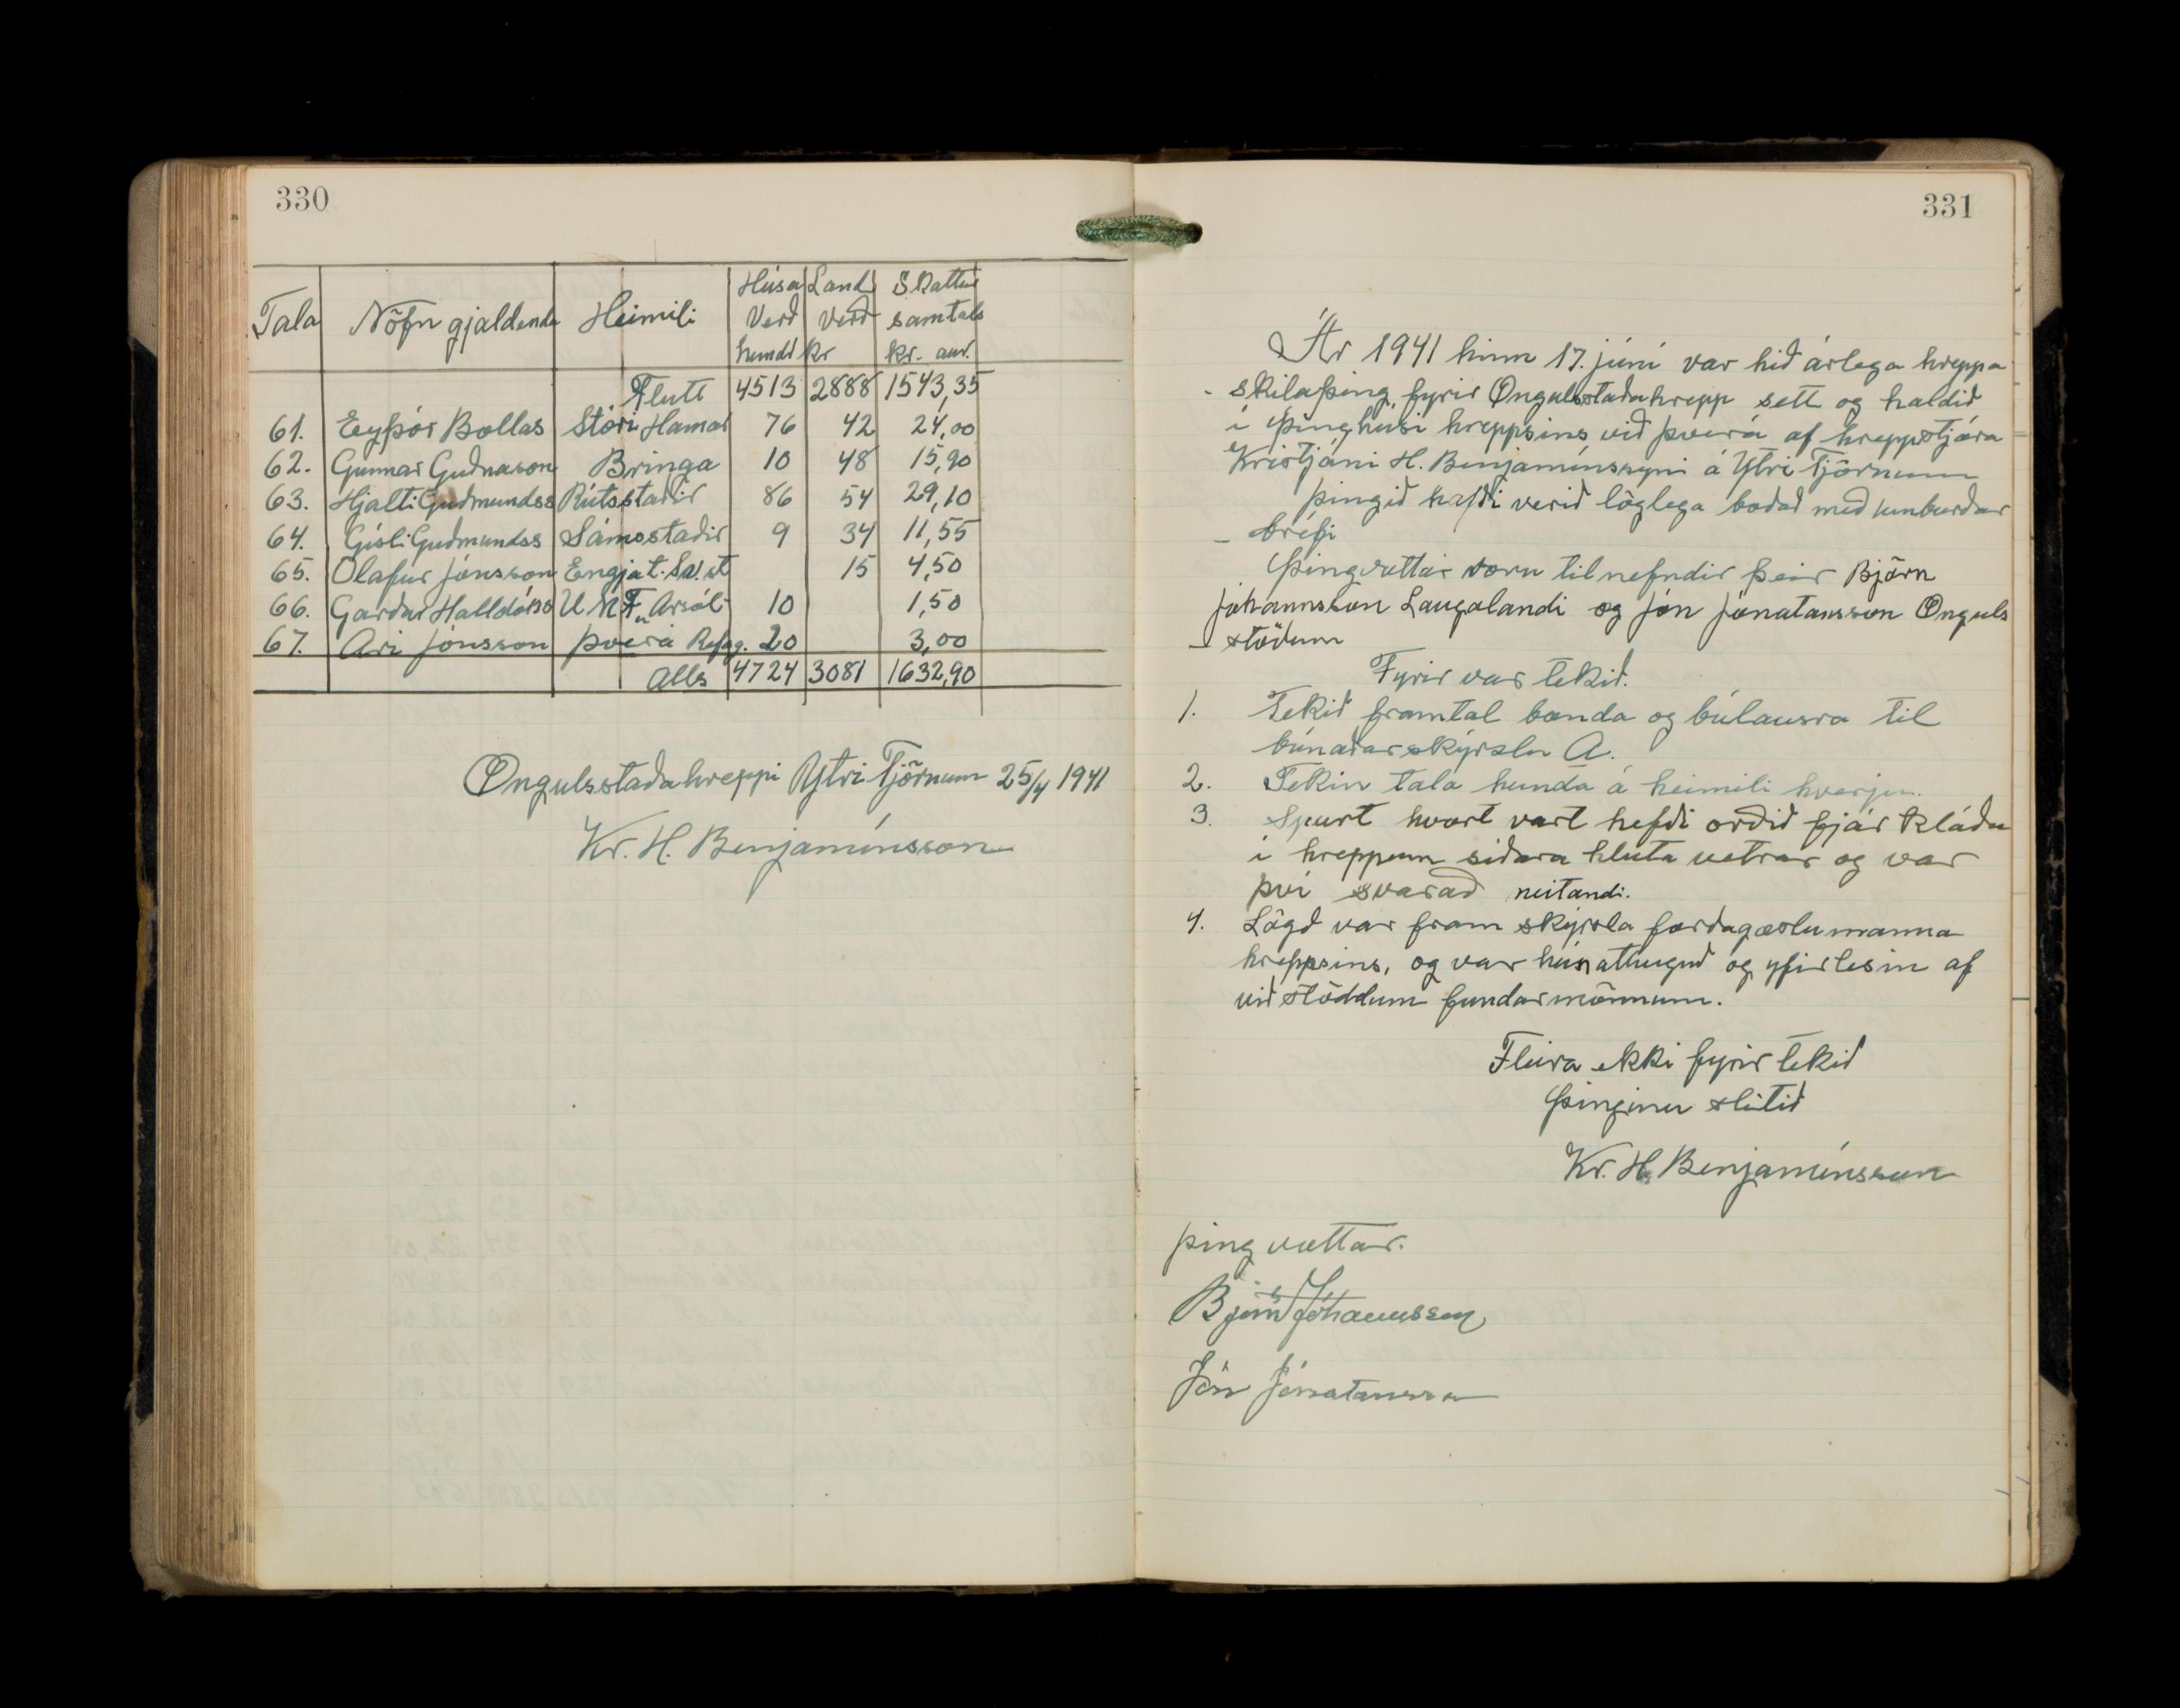 330
Tala Nöfn gjaldenda Heimili Húsa Verð hundr Land verð kr Skattur samtals kr. aur.
Flutt 4513 2888 1543,35
61. Eyþór Bollas Stóri Hamar 76 42 24,00
62. Gunnar Guðnason Bringa 10 48 15,90
63. Hjalti Guðmundss Rútsstaðir 86 54 29,10
64. Gísli Guðmundss Sámsstaðir 9 34 11,55
65. Olafur Jónsson Engjat. 15 4,50
66. Garðar Halldórss U M F. Arsól 10 1,50
67. Ari Jónsson þverá 20 3,00
Alls 4724 3081 1632,90
Ongulsstaðahreppi Ytri Tjörnum 25/4 1941
Kr. H. Benjamínsson
331
Ár 1941 hinn 17. júní var hið árlega hreppa
- skilaþing fyrir Ongulsstaðahrepp sett og haldið
í þinghúsi hreppsins við þverá af hreppstjóra
Kristjáni H. Benjamínssyni á Ytri Tjörnum
Þingið hafði verið löglega boðað með umburðar
- bréfi
Þingvottar voru tilnefndir þeir Björn
Jóhannsson Laugalandi og Jón Jónatansson Onguls
- stöðum
Fyrir var tekið.
1. Tekið framtal bænda og búlausra til
búnaðarskýrslu A.
2. Tekin tala hunda á heimili hverju.
3. Spurt hvort vart hefði orðið fjárkláða
í hreppnum síðara hluta vetrar og var
því svarað neitandi.
4. Lögð var fram skýrsla forðagæslumanna
hreppsins, og var hún athuguð og yfirlesin af
viðstöddum fundarmönnum.
Fleira ekki fyrir tekið
Þinginu slitið
Kr. H. Benjamínsson
Þingvottar.
Björn Jóhannsson
Jón Jónatansson